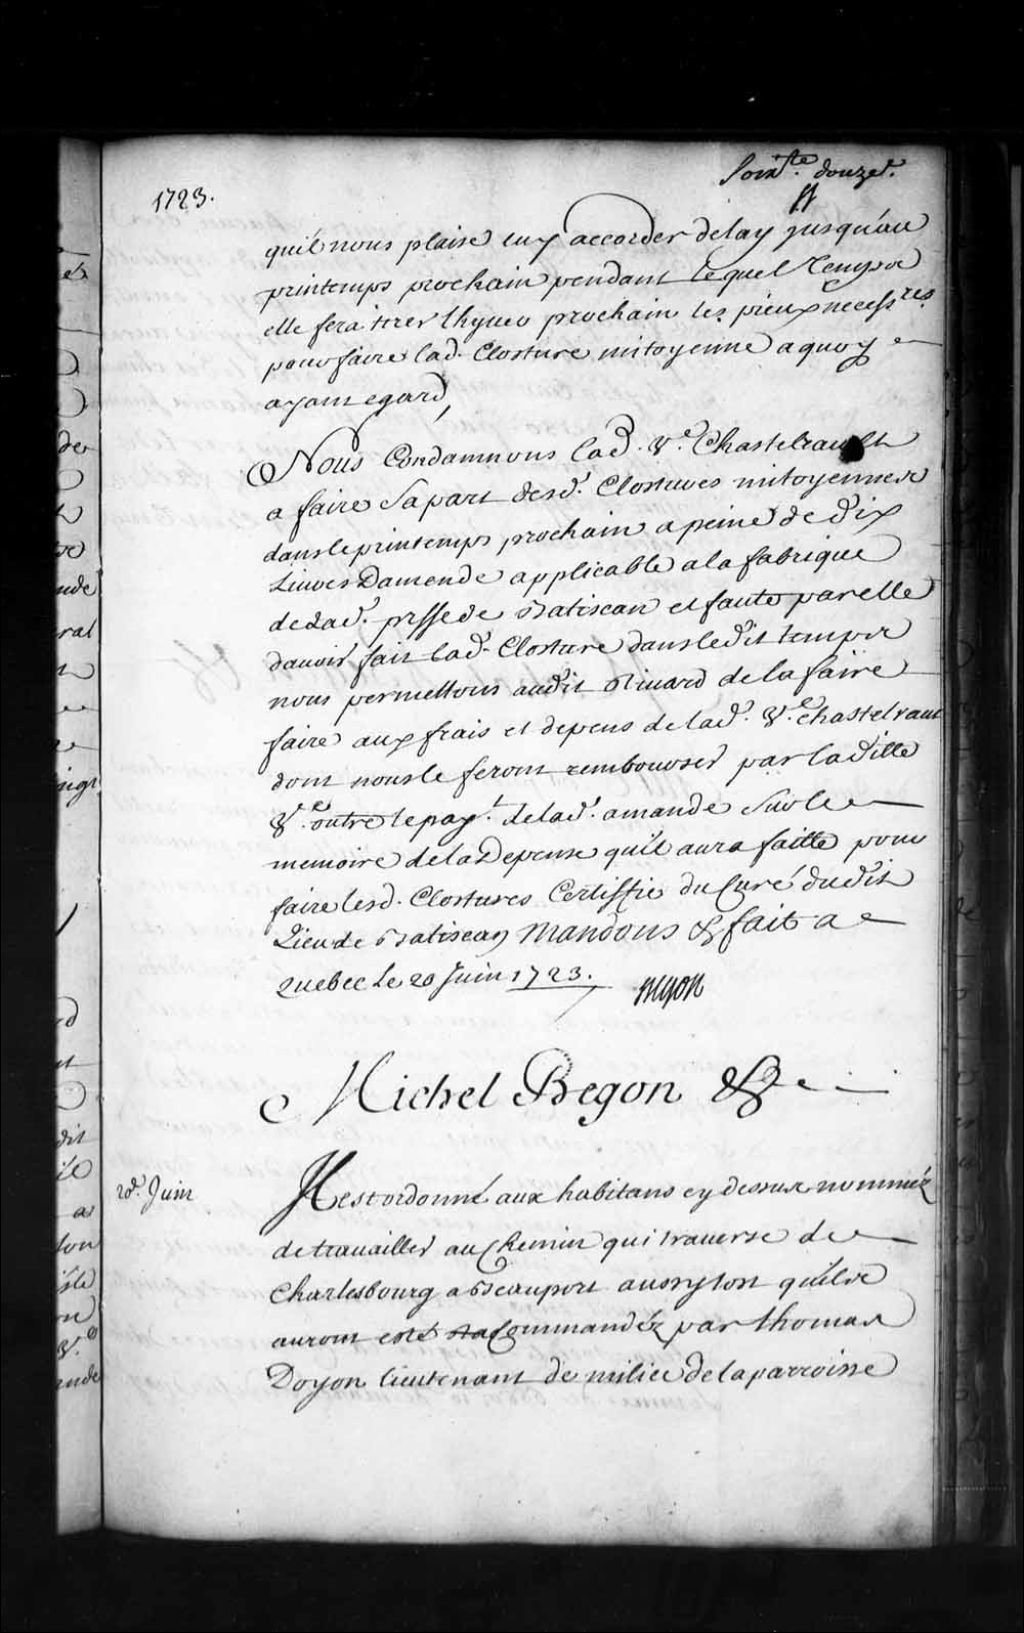 1723.
Soixte. douze.
qu'il nous plaise luy accorder delay jusqu'au
printemps prochain pendant lequel temps
elle fera tirer lhyver prochain les pieux necessres
pour faire lad. Closture mitoyenne a quoy
ayant egard,
Nous Condamnons lad. Ve. Chastelrault
a faire Sa part desd. Clostures mitoyennes
dans le printemps prochain a peine de dix
Livres Damende applicable a la fabrique
de Lad. prsse de Batiscan et faute par elle
davoir fait lad. Closture dans ledit temps
nous permettons audit Rivard de la faire
faire aux frais et depens de lad. Ve. chastelraut
dont nous le ferons rembourser par laditte
Ve. outre le payt. de lad. amande Sur le
memoire de la Depense qu'il aura faitte pour
faire lesd. Clostures Certiffié du Curé dudit
Lieu de Batiscan Mandons &c fait a
Quebec Le 20 Juin 1723.
Begon
Michel Begon &c
20e. Juin
Il est ordonné aux habitans cy dessus nomméz
de travailler au Chemin qui traverse de
Charlesbourg a Beauport aussytost qu'ils
auront esté Commandéz par thomas
Doyon lieutenant de milice de la parroisse